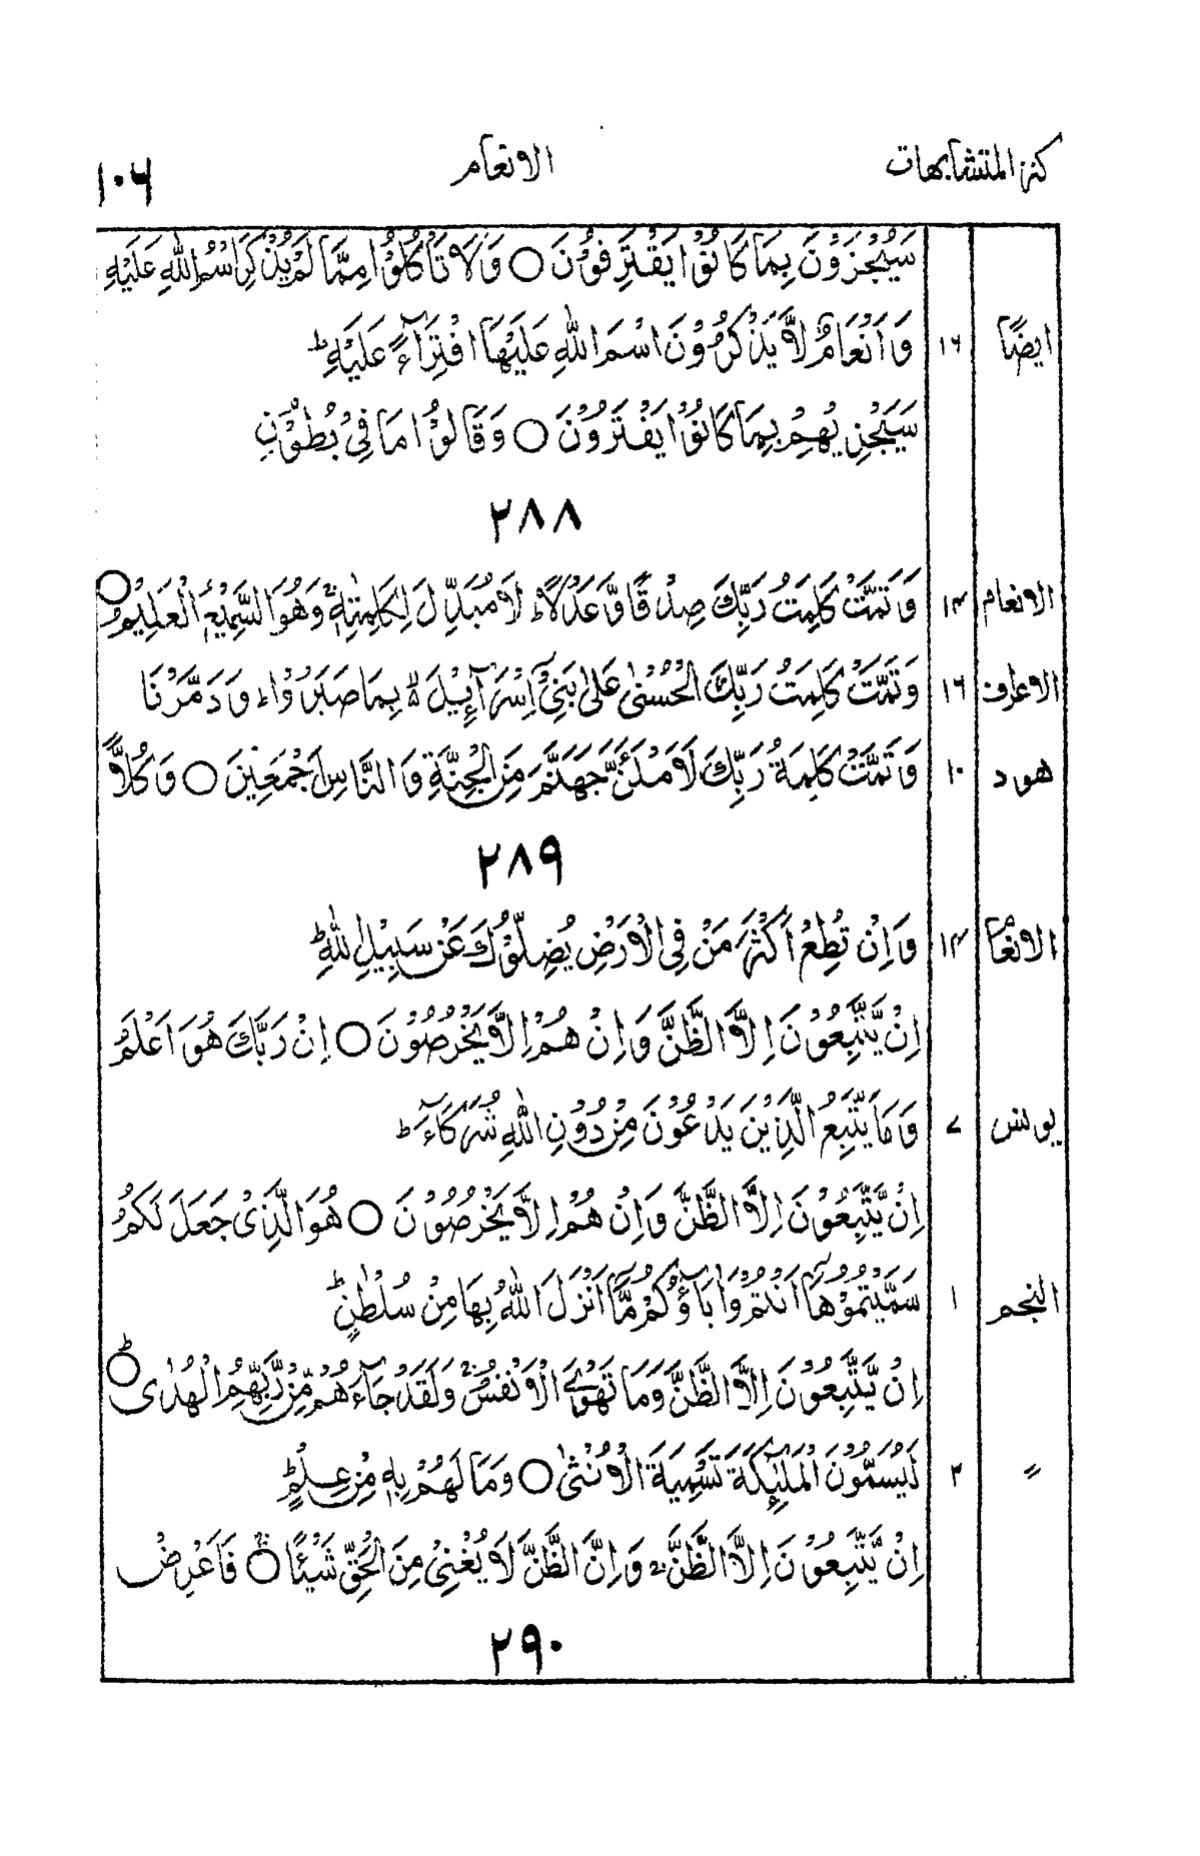 كنز المتشابهات
الانعام
١٠٦
سَيُجْزَوْنَ بِمَا كَانُوْا يَقْتَرِفُوْنَ ○ وَلَا تَاْكُلُوْا مِمَّا لَمْ يُذْكَرِ اسْمُ اللّٰهِ عَلَيْهِ
ايضًا ١٦ وَاَنْعَامٌ لَّا يَذْكُرُوْنَ اسْمَ اللّٰهِ عَلَيْهَا افْتِرَآءً عَلَيْهِ ؕ
سَيَجْزِيْهِمْ بِمَا كَانُوْا يَفْتَرُوْنَ ○ وَقَالُوْا مَا فِيْ بُطُوْنِ
٢٨٨
الانعام ١٤ وَتَمَّتْ كَلِمَتُ رَبِّكَ صِدْقًا وَّعَدْلًا ؕ لَا مُبَدِّلَ لِكَلِمٰتِهٖ ۚ وَهُوَ السَّمِيْعُ الْعَلِيْمُ ○
الاعراف ١٦ وَتَمَّتْ كَلِمَتُ رَبِّكَ الْحُسْنٰى عَلٰى بَنِيْٓ اِسْرَآءِيْلَ ۙ بِمَا صَبَرُوْا ؕ وَدَمَّرْنَا
هود ١٠ وَتَمَّتْ كَلِمَةُ رَبِّكَ لَاَمْلَـَٔنَّ جَهَنَّمَ مِنَ الْجِنَّةِ وَالنَّاسِ اَجْمَعِيْنَ ○ وَكُلًّا
٢٨٩
الانعام ١٤ وَاِنْ تُطِعْ اَكْثَرَ مَنْ فِى الْاَرْضِ يُضِلُّوْكَ عَنْ سَبِيْلِ اللّٰهِ ؕ
اِنْ يَّتَّبِعُوْنَ اِلَّا الظَّنَّ وَاِنْ هُمْ اِلَّا يَخْرُصُوْنَ ○ اِنَّ رَبَّكَ هُوَ اَعْلَمُ
يونس ٧ وَمَا يَتَّبِعُ الَّذِيْنَ يَدْعُوْنَ مِنْ دُوْنِ اللّٰهِ شُرَكَآءَ ؕ
اِنْ يَّتَّبِعُوْنَ اِلَّا الظَّنَّ وَاِنْ هُمْ اِلَّا يَخْرُصُوْنَ ○ هُوَ الَّذِيْ جَعَلَ لَكُمُ
النجم ١ سَمَّيْتُمُوْهَآ اَنْتُمْ وَاٰبَآؤُكُمْ مَّآ اَنْزَلَ اللّٰهُ بِهَا مِنْ سُلْطٰنٍ ؕ
اِنْ يَّتَّبِعُوْنَ اِلَّا الظَّنَّ وَمَا تَهْوَى الْاَنْفُسُ ۚ وَلَقَدْ جَآءَهُمْ مِّنْ رَّبِّهِمُ الْهُدٰى ○ ؕ
〃 ٢ لَيُسَمُّوْنَ الْمَلٰٓئِكَةَ تَسْمِيَةَ الْاُنْثٰى ○ وَمَا لَهُمْ بِهٖ مِنْ عِلْمٍ ؕ
اِنْ يَّتَّبِعُوْنَ اِلَّا الظَّنَّ ۚ وَاِنَّ الظَّنَّ لَا يُغْنِيْ مِنَ الْحَقِّ شَيْئًا ○ فَاَعْرِضْ
٢٩٠